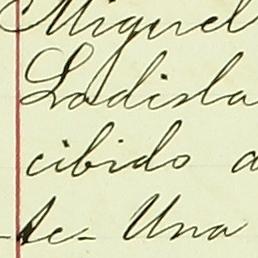 Miguel
Ladisla
cibido a
-te- Una